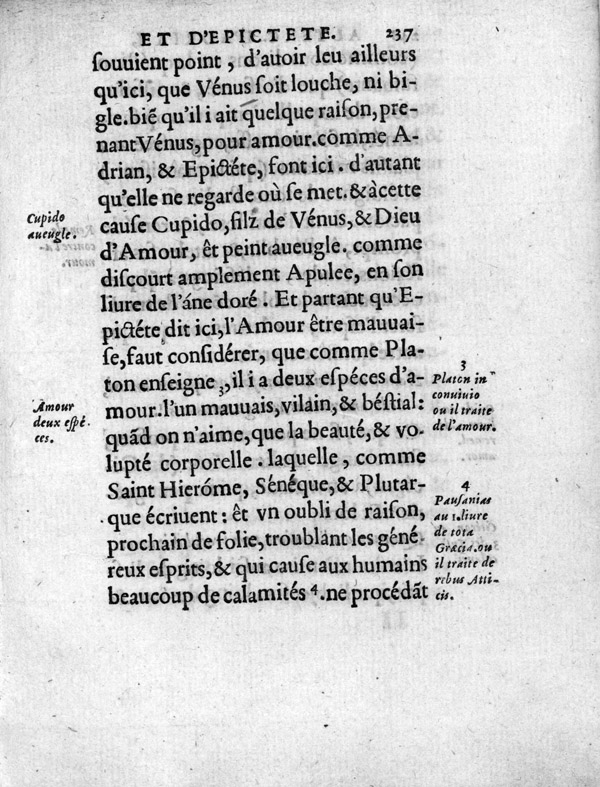 ET D'EPICTETE. 237
ſouuient point, d'auoir leu ailleurs
qu'ici, que Vénus ſoit louche, ni bi-
gle. biẽ qu'il i ait quelque raiſon, pre-
nant Vénus, pour amour. comme A-
drian, & Epictéte, font ici. d'autant
qu'elle ne regarde où ſe met. & à cette
Cupido
aueugle.
cauſe Cupido, filz de Vénus, & Dieu
d'Amour, êt peint aueugle. comme
diſcourt amplement Apulee, en ſon
liure de l'áne doré. Et partant qu'E-
pictéte dit ici, l'Amour être mauuai-
ſe, faut conſidérer, que comme Pla-
ton enſeigne 3, il i a deux eſpéces d'a-
3
Platon in
conuiuio
ou il traite
de l'amour.
Amour
deux eſpé-
ces.
mour. l'un mauuais, vilain, & béſtial:
quãd on n'aime, que la beauté, & vo-
lupté corporelle. laquelle, comme
Saint Hieróme, Sénéque, & Plutar-
que écriuent: êt vn oubli de raiſon,
prochain de folie, troublant les géné-
reux eſprits, & qui cauſe aux humains
beaucoup de calamités 4. ne procédãt
4
Pauſanias
au 1. liure
de tota
Græcia. ou
il traite de
rebus Atti-
cis.